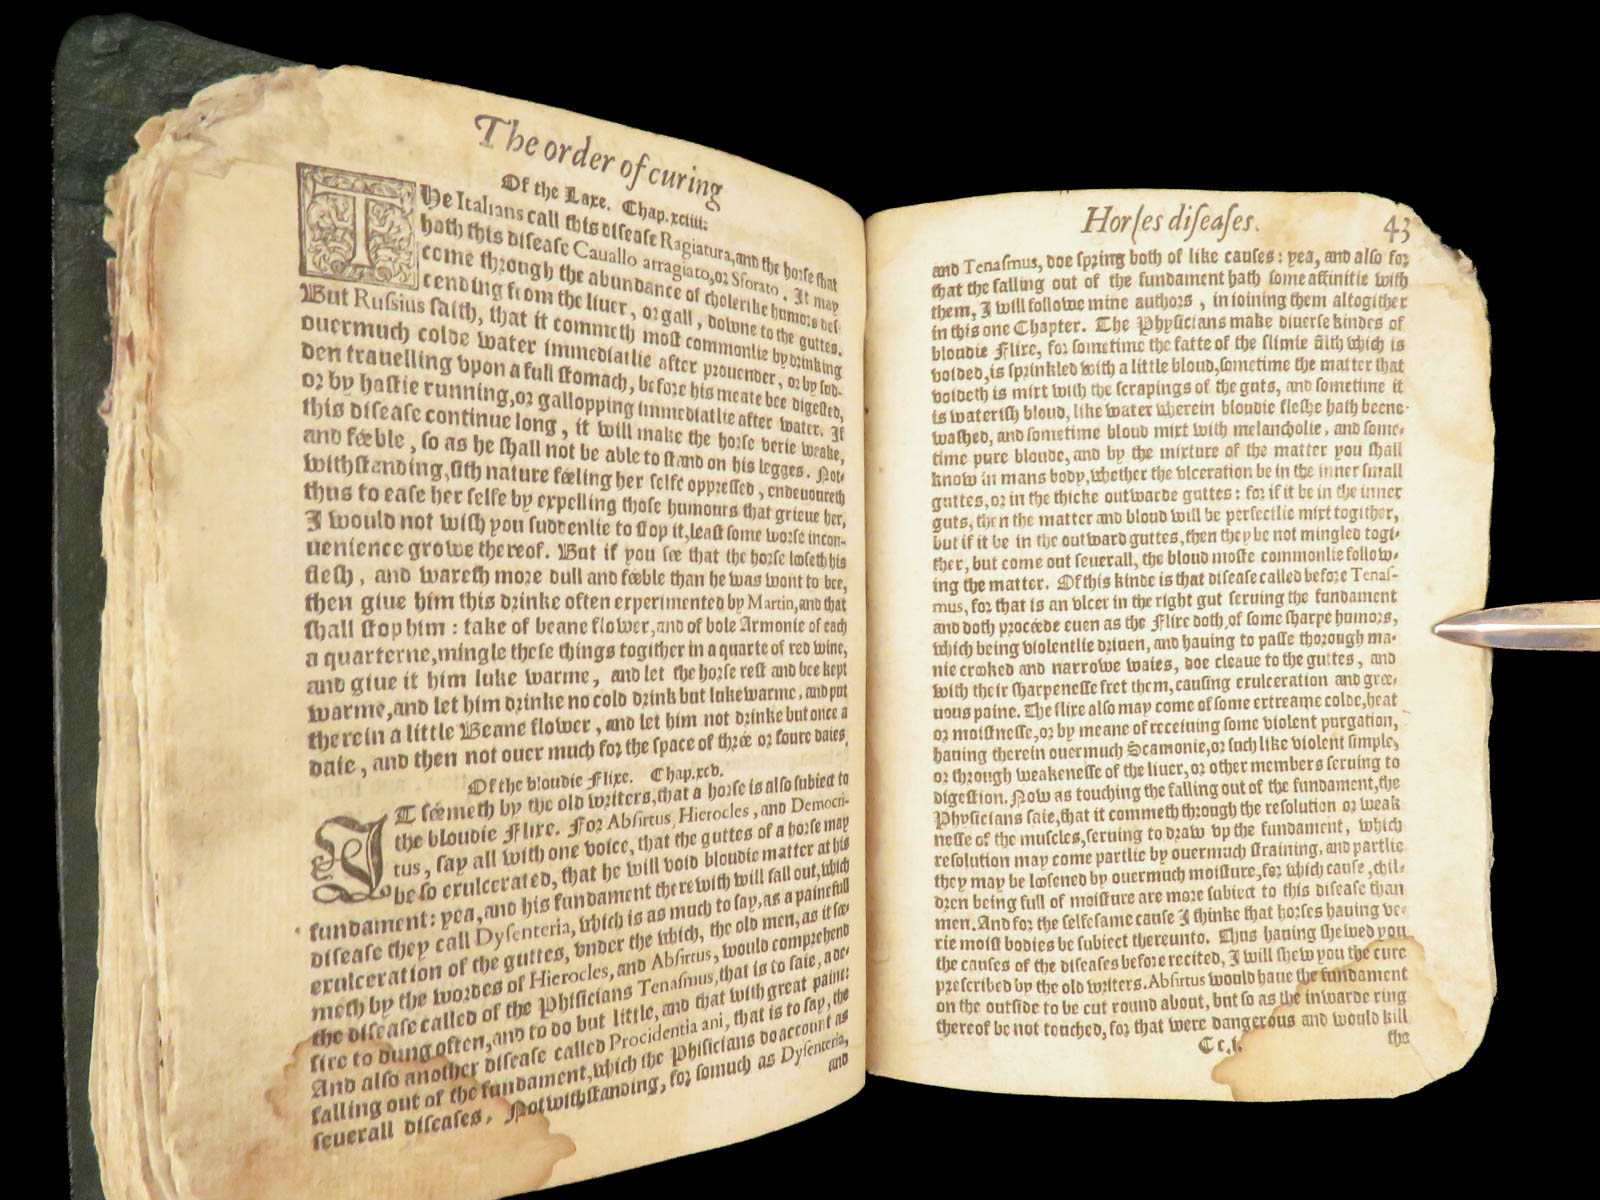 The order of curing
Of the Laxe. Chap.xciiii.
THe Italians call this disease Ragiatura, and the horse that
hath this disease Cauallo arragiato, or Sforato. It may
come through the abundance of cholerike humors des-
cending from the liuer, or gall, downe to the guttes.
But Russius saith, that it commeth most commonlie by drinking
ouermuch colde water immediatlie after prouender, or by sod-
den trauelling vpon a full stomach, before his meate bee digested,
or by hastie running, or gallopping immediatlie after water. If
this disease continue long, it will make the horse verie weake,
and féeble, so as he shall not be able to stand on his legges. Not-
withstanding, sith nature féeling her selfe oppressed, endeuoureth
thus to ease her selfe by expelling those humours that grieue her,
I would not wish you suddenlie to stop it, least some worse incon-
uenience growe thereof. But if you sée that the horse looseth his
flesh, and wareth more dull and féeble than he was wont to bee,
then giue him this drinke often experimented by Martin, and that
shall stop him: take of beane flower, and of bole Armonie of each
a quarterne, mingle these things together in a quarte of red wine,
and giue it him luke warme, and let the horse rest and bee kept
warme, and let him drinke no cold drink but lukewarme, and put
therein a little Beane flower, and let him not drinke but once a
daie, and then not ouer much for the space of thrée or foure daies.
Of the bloudie Flixe. Chap.xcv.
IT séemeth by the old writers, that a horse is also subiect to
the bloudie Flixe. For Absirtus, Hierocles, and Democri-
tus, say all with one voice, that the guttes of a horse may
be so exulcerated, that he will void bloudie matter at his
fundament: yea, and his fundament therewith will fall out, which
disease they call Dysenteria, which is as much to say, as a painefull
exulceration of the guttes, vnder the which, the old men, as it sée-
meth by the wordes of Hierocles, and Absirtus, would comprehend
the disease called of the Phisicians Tenasmus, that is to saie, a de-
sire to dung often, and to do but little, and that with great paine:
And also another disease called Procidentia ani, that is to say, the
falling out of the fundament, which the Phisicians do account as
seuerall diseases. Notwithstanding, for somuch as Dysenteria,
and
Horses diseases. 43
and Tenasmus, doe spring both of like causes: yea, and also for
that the falling out of the fundament hath some affinitie with
them, I will followe mine authors, in ioining them altogither
in this one Chapter. The Physicians make diuerse kindes of
bloudie Flixe, for sometime the fatte of the slimie filth which is
voided, is sprinkled with a little bloud, sometime the matter that
voideth is mixt with the scrapings of the guts, and sometime it
is waterish bloud, like water wherein bloudie fleshe hath beene
washed, and sometime bloud mixt with melancholie, and some-
time pure bloude, and by the mixture of the matter you shall
know in mans body, whether the vlceration be in the inner small
guttes, or in the thicke outwarde guttes: for if it be in the inner
guts, then the matter and bloud will be perfectlie mixt togither,
but if it be in the outward guttes, then they be not mingled togi-
ther, but come out seuerall, the bloud moste commonlie follow-
ing the matter. Of this kinde is that disease called before Tenas-
mus, for that is an vlcer in the right gut seruing the fundament
and doth procéede euen as the Flixe doth, of some sharpe humors,
which being violentlie driuen, and hauing to passe thorough ma-
nie crooked and narrowe waies, doe cleaue to the guttes, and
with their sharpenesse fret them, causing exulceration and gree-
uous paine. The flixe also may come of some extreame colde, heat
or moistnesse, or by meane of receiuing some violent purgation,
hauing therein ouermuch Scamonie, or such like violent simple,
or through weakenesse of the liuer, or other members seruing to
digestion. Now as touching the falling out of the fundament, the
Physicians saie, that it commeth through the resolution or weak
nesse of the muscles, seruing to draw vp the fundament, which
resolution may come partlie by ouermuch straining, and partlie
they may be loosened by ouermuch moisture, for which cause, chil-
dren being full of moisture are more subiect to this disease than
men. And for the selfesame cause I thinke that horses hauing ve-
rie moist bodies be subiect thereunto. Thus hauing shewed you
the causes of the diseases before recited, I will shew you the cure
prescribed by the old writers. Absirtus would haue the fundament
on the outside to be cut round about, but so as the inwarde ring
thereof be not touched, for that were dangerous and would kill
Cc.i. the